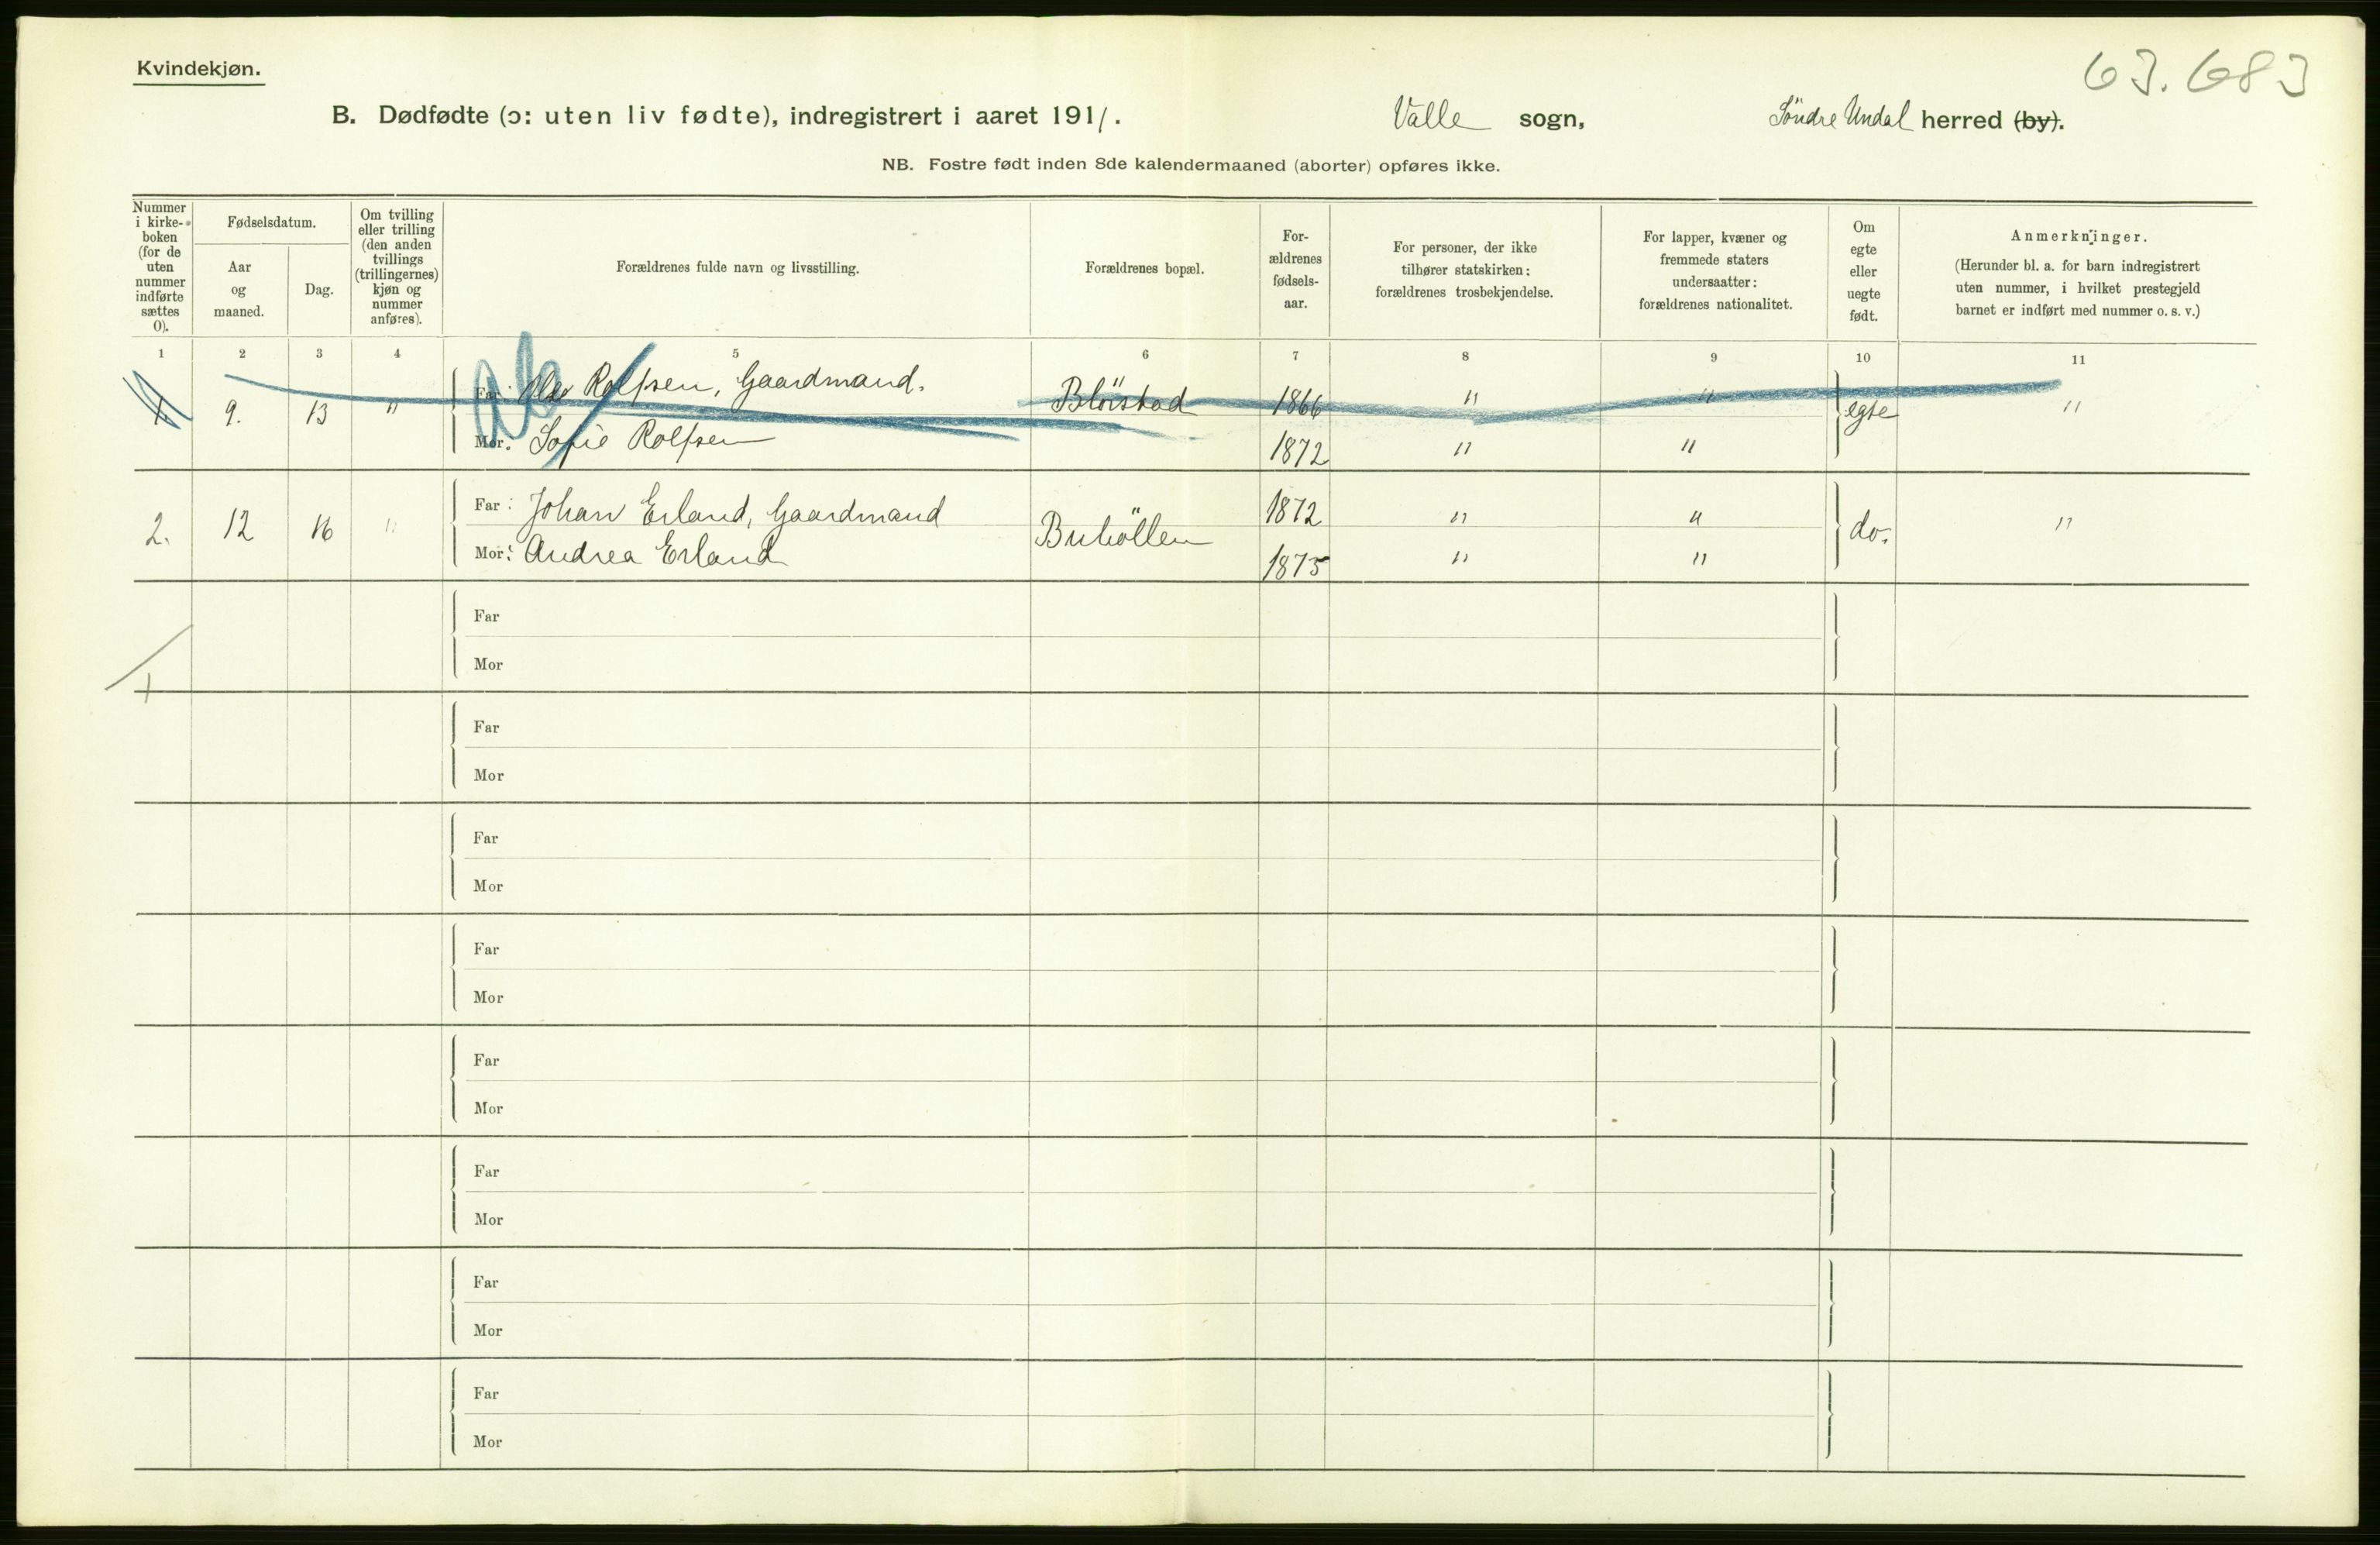 Kvindekjøn.
63.683
B. Dødfødte (ɔ: uten liv fødte), indregistrert i aaret 1911. Valle sogn, Söndre Undal herred (by).
NB. Fostre født inden 8de kalendermaaned (aborter) opføres ikke.
Nummer
i kirke-
boken
(for de
uten
nummer
indførte
sættes
0).
Fødselsdatum.
Aar
og
maaned.
Dag.
Om tvilling
eller trilling
(den anden
tvillings
(trillingernes)
kjøn og
nummer
anføres).
Forældrenes fulde navn og livsstilling.
Forældrenes bopæl.
For-
ældrenes
fødsels-
aar.
For personer, der ikke
tilhører statskirken:
forældrenes trosbekjendelse.
For lapper, kvæner og
fremmede staters
undersaatter:
forældrenes nationalitet.
Om
egte
eller
uegte
født.
Anmerkninger.
(Herunder bl. a. for barn indregistrert
uten nummer, i hvilket prestegjeld
barnet er indført med nummer o. s. v.)
1 2 3 4 5 6 7 8 9 10 11
1. 9. 13 " Far: Rolfsen, Gaardmand. 1866 " " egte "
Mor: Sofie Rolfsen 1872 " "
2. 12 16 " Far: Johan Erland, Gaardmand Buhöllen 1872 " " do. "
Mor: Andrea Erland 1875 " "
Far
Mor
1
Far
Mor
Far
Mor
Far
Mor
Far
Mor
Far
Mor
Far
Mor
Far
Mor